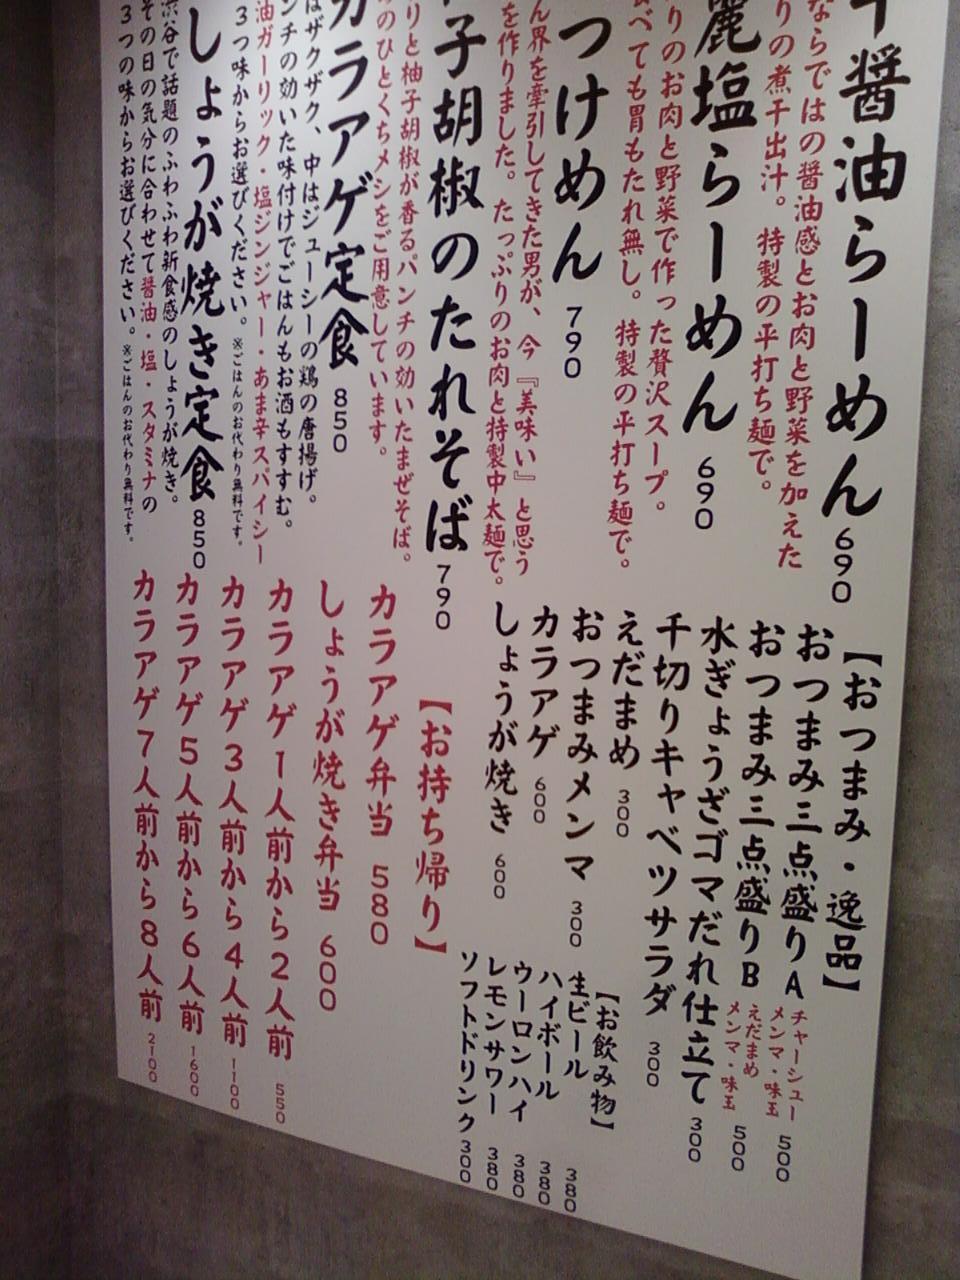 干醤油らーめん 690
ならではの醤油感とお肉と野菜を加えた
りの煮干出汁。特製の平打ち麺で。
麗塩らーめん 690
りのお肉と野菜で作った贅沢スープ。
べても胃もたれ無し。特製の平打ち麺で。
つけめん 790
ん界を牽引してきた男が、今『美味い』と思う
を作りました。たっぷりのお肉と特製中太麺で。
子胡椒のたれそば 790
りと柚子胡椒が香るパンチの効いたまぜそば。
のひとくちメシをご用意しています。
カラアゲ定食 850
はザクザク、中はジューシーの鶏の唐揚げ。
ンチの効いた味付けでごはんもお酒もすすむ。
油ガーリック・塩ジンジャー・あま辛スパイシー
3つ味からお選びください。※ごはんのお代わり無料です。
しょうが焼き定食 850
渋谷で話題のふわふわ新食感のしょうが焼き。
その日の気分に合わせて醤油・塩・スタミナの
3つの味からお選びください。※ごはんのお代わり無料です。
【おつまみ・逸品】
おつまみ三点盛りA チャーシュー メンマ・味玉 500
おつまみ三点盛りB えだまめ メンマ・味玉 500
水ぎょうざゴマだれ仕立て 300
千切りキャベツサラダ 300
えだまめ 300
おつまみメンマ 300
カラアゲ 600
しょうが焼き 600
【お飲み物】
生ビール 380
ハイボール 380
ウーロンハイ 380
レモンサワー 380
ソフトドリンク 300
【お持ち帰り】
カラアゲ弁当 580
しょうが焼き弁当 600
カラアゲ1人前から2人前 550
カラアゲ3人前から4人前 1100
カラアゲ5人前から6人前 1600
カラアゲ7人前から8人前 2100